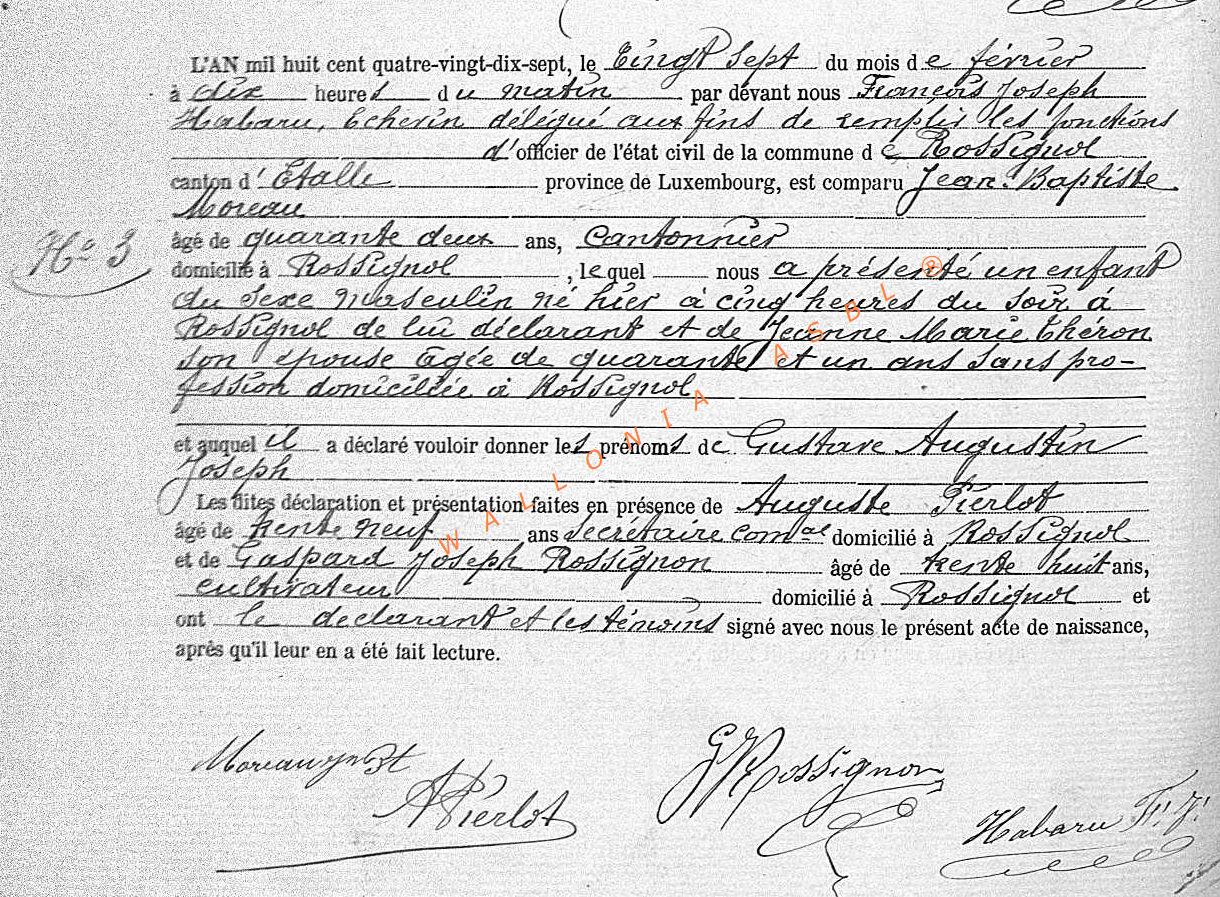 L'AN mil huit cent quatre-vingt-dix-sept, le Vingt sept du mois de février
à dix heures du matin par devant nous François Joseph
Habaru, Echevin délégué aux fins de remplir les fonctions
d'officier de l'état civil de la commune de Rossignol
canton d'Etalle province de Luxembourg, est comparu Jean-Baptiste
Moreau
N° 3
âgé de quarante deux ans, Cantonnier
domicilié à Rossignol, lequel nous a présenté un enfant
du sexe masculin né hier à cinq heures du soir à
Rossignol de lui déclarant et de Jeanne Marie Théron
son épouse âgée de quarante et un ans sans pro-
fession domiciliée à Rossignol
et auquel il a déclaré vouloir donner les prénoms de Gustave Augustin
Joseph
Les dites déclaration et présentation faites en présence de Auguste Pierlot
âgé de trente neuf ans secrétaire comal domicilié à Rossignol
et de Gaspard Joseph Rossignon âgé de trente huit ans,
cultivateur domicilié à Rossignol et
ont le déclarant et les témoins signé avec nous le présent acte de naissance,
après qu'il leur en a été fait lecture.
WALLONIA ASBL ®
Moreau jn Bt
A Pierlot
GJ Rossignon
Habaru F. J.